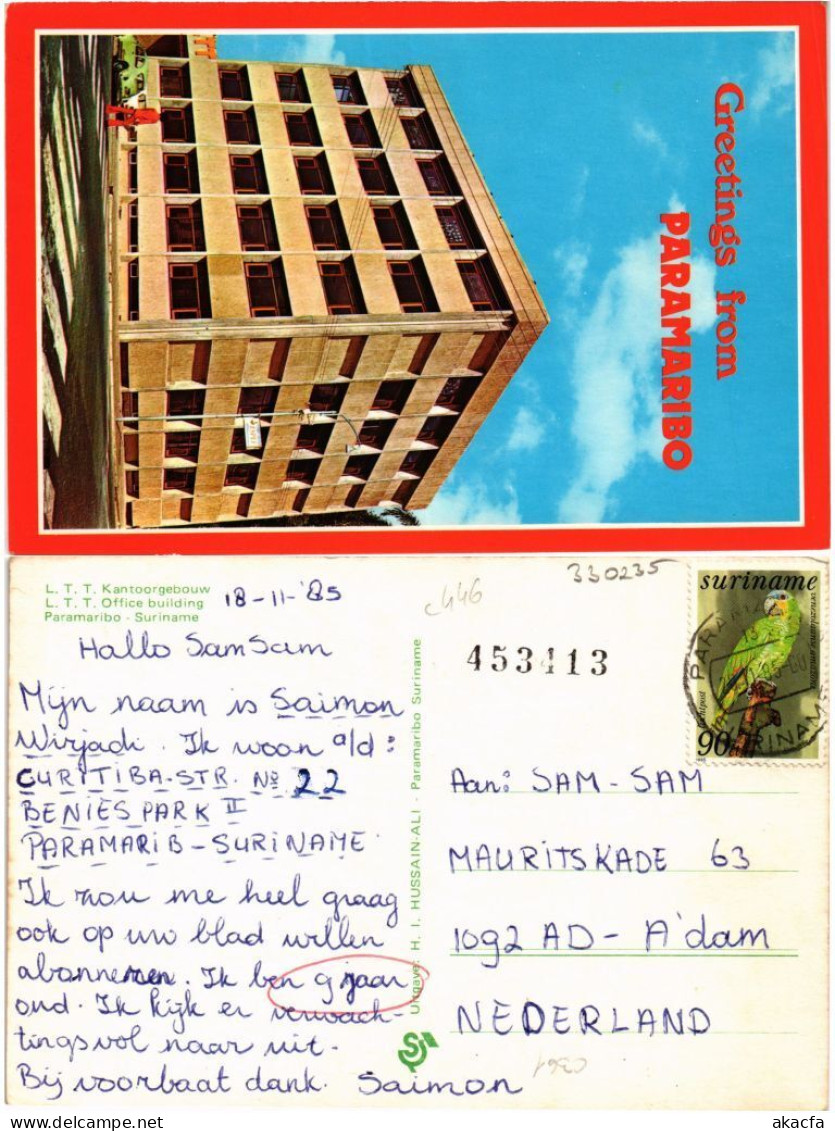 Greetings from
PARAMARIBO
L. T. T. Kantoorgebouw
L. T. T. Office building
Paramaribo - Suriname
18-11-'85
c446
330235
453413
suriname
venezolaanse amazone
90ct
PARAMARIBO
SURINAME
Hallo SamSam
Mijn naam is Saimon
Wirjadi. Ik woon a/d:
CURITIBA-STR. No 22
BENIES PARK II
PARAMARIB - SURINAME
Ik zou me heel graag
ook op uw blad willen
abonneren. Ik ben 9 jaar
oud. Ik kijk er verwach-
tingsvol naar uit.
Bij voorbaat dank. Saimon
Uitgave: H. I. HUSSAIN-ALI - Paramaribo Suriname
Aan: SAM-SAM
MAURITSKADE 63
1092 AD - A'dam
NEDERLAND
akacfa
https://www.delcampe.net